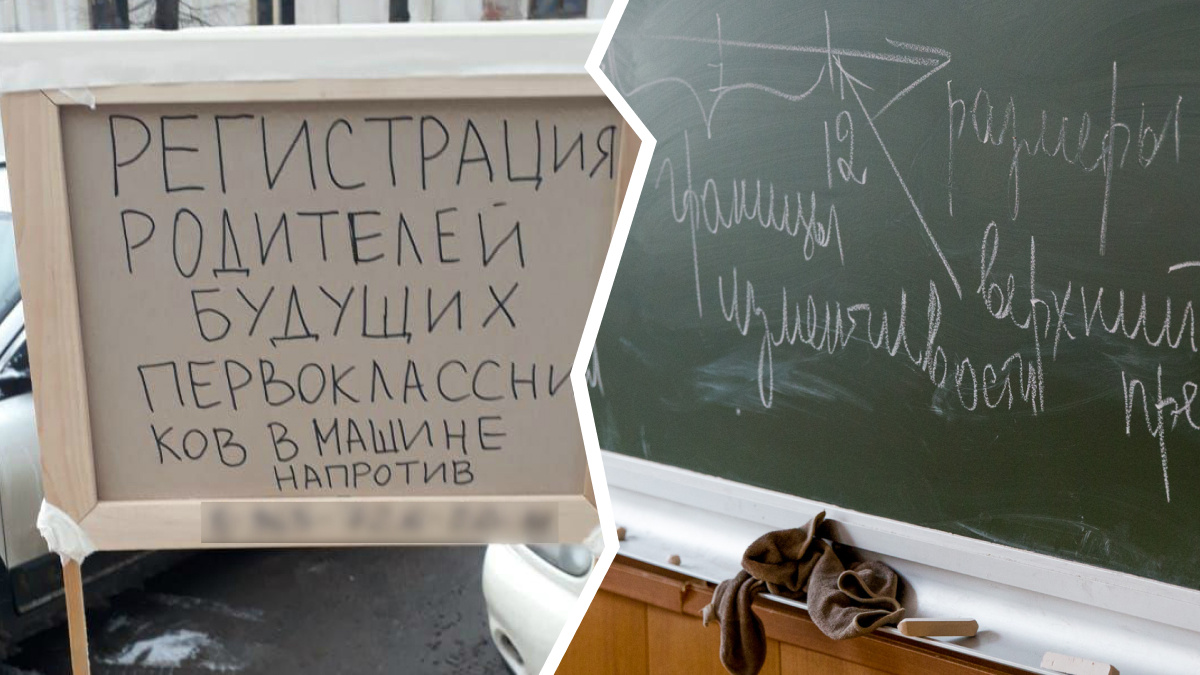 РЕГИСТРАЦИЯ
РОДИТЕЛЕЙ
БУДУЩИХ
ПЕРВОКЛАССНИ
КОВ В МАШИНЕ
НАПРОТИВ
7
12
размеры
границы
верхний
изменчивости